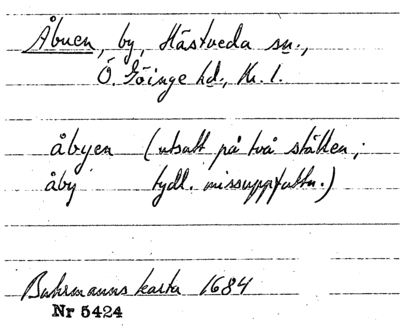 Åbuen, by, Hästveda sn.,
Ö. Göinge hd., Kr. l.
åbyen (utsatt på två ställen;
åby tydl. missuppfattn.)
Buhrmanns karta 1684
Nr 5424